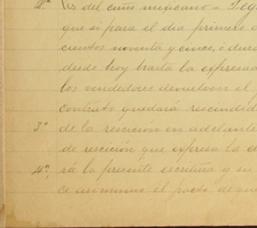 2ª. les del cuño mexicano = Seg
que si para el dia primero d
cientos noventa y cinco, ó dura
desde hoy hasta la expresada
los vendedores devuelven el
contrato quedará rescindido
3ª de la rescición en adelante
de rescición que expresa la c
4ª. rá la presente escritura y su
ce asimismo el pacto de que